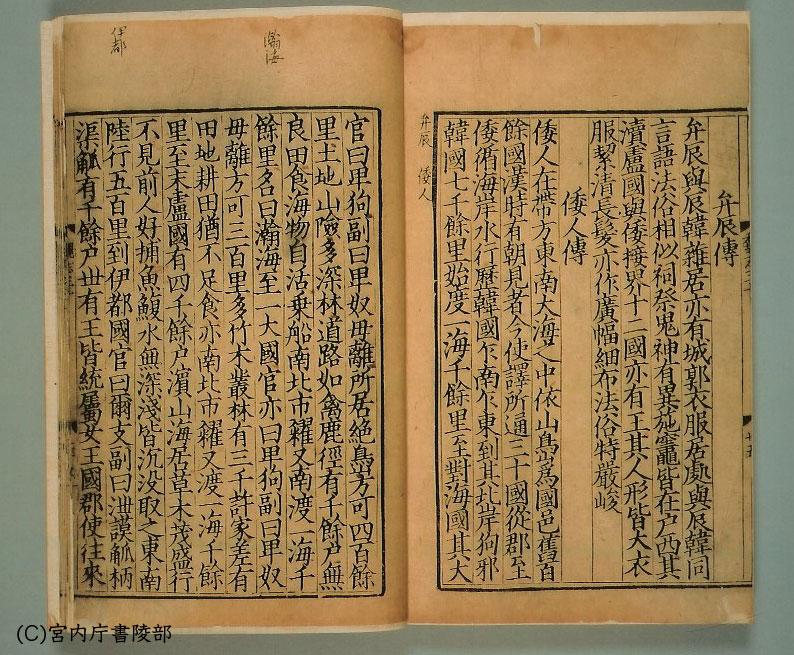 弁辰傳
弁辰與辰韓雜居亦有城郭衣服居處與辰韓同
言語法俗相似祠祭鬼神有異施竈皆在戶西其
瀆盧國與倭接界十二國亦有王其人形皆大衣
服絜清長髮亦作廣幅細布法俗特嚴峻
倭人傳
倭人在帶方東南大海之中依山㠀爲國邑舊百
餘國漢時有朝見者今使譯所通三十國從郡至
倭循海岸水行歷韓國乍南乍東到其北岸狗邪
韓國七千餘里始度一海千餘里至對海國其大
弁辰 倭人
官曰卑狗副曰卑奴毋離所居絶㠀方可四百餘
里土地山險多深林道路如禽鹿徑有千餘戶無
良田食海物自活乗船南北市糴又南渡一海千
餘里名曰瀚海至一大國官亦曰卑狗副曰卑奴
毋離方可三百里多竹木叢林有三千許家差有
田地耕田猶不足食亦南北市糴又渡一海千餘
里至末盧國有四千餘戶濵山海居草木茂盛行
不見前人好捕魚鰒水無深淺皆沉没取之東南
陸行五百里到伊都國官曰爾支副曰泄謨觚柄
渠觚有千餘戶丗有王皆統屬女王國郡使往來
瀚海
伊都
(C)宮内庁書陵部